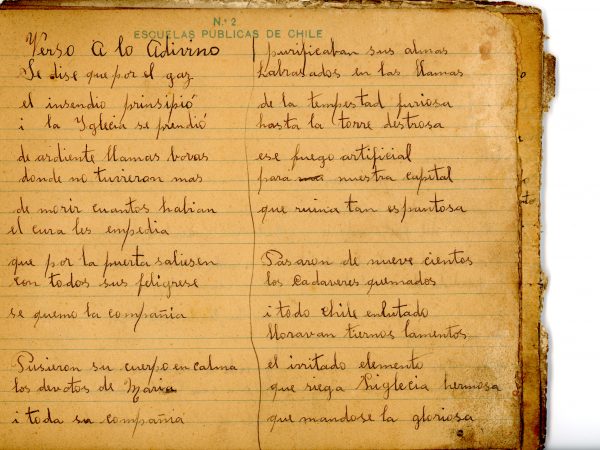 N.º 2
ESCUELAS PÚBLICAS DE CHILE
Verso A lo Adivino
Se dise que por el gaz
el insendio prinsipió
i la Yglecia se prendió
de ardiente llamas boras
donde no tuvieron mas
de morir cuantos habian
el cura les empedia
que por la puerta saliesen
con todos sus feligrese
se quemo la compañia
Pusieron su cuerpo en calma
los devotos de Maria
i toda su compañia
purificaban sus almas
habrasados en las llamas
de la tempestad furiosa
hasta la torre destrosa
ese fuego artificial
para nuestra capital
que ruina tan espantosa
Pasaron de nueve cientos
los Cadaveres quemados
i todo Chile enlutado
lloravan tiernos lamentos
el irritado elemento
que riega Liglecia hermosa
que mandose la gloriosa